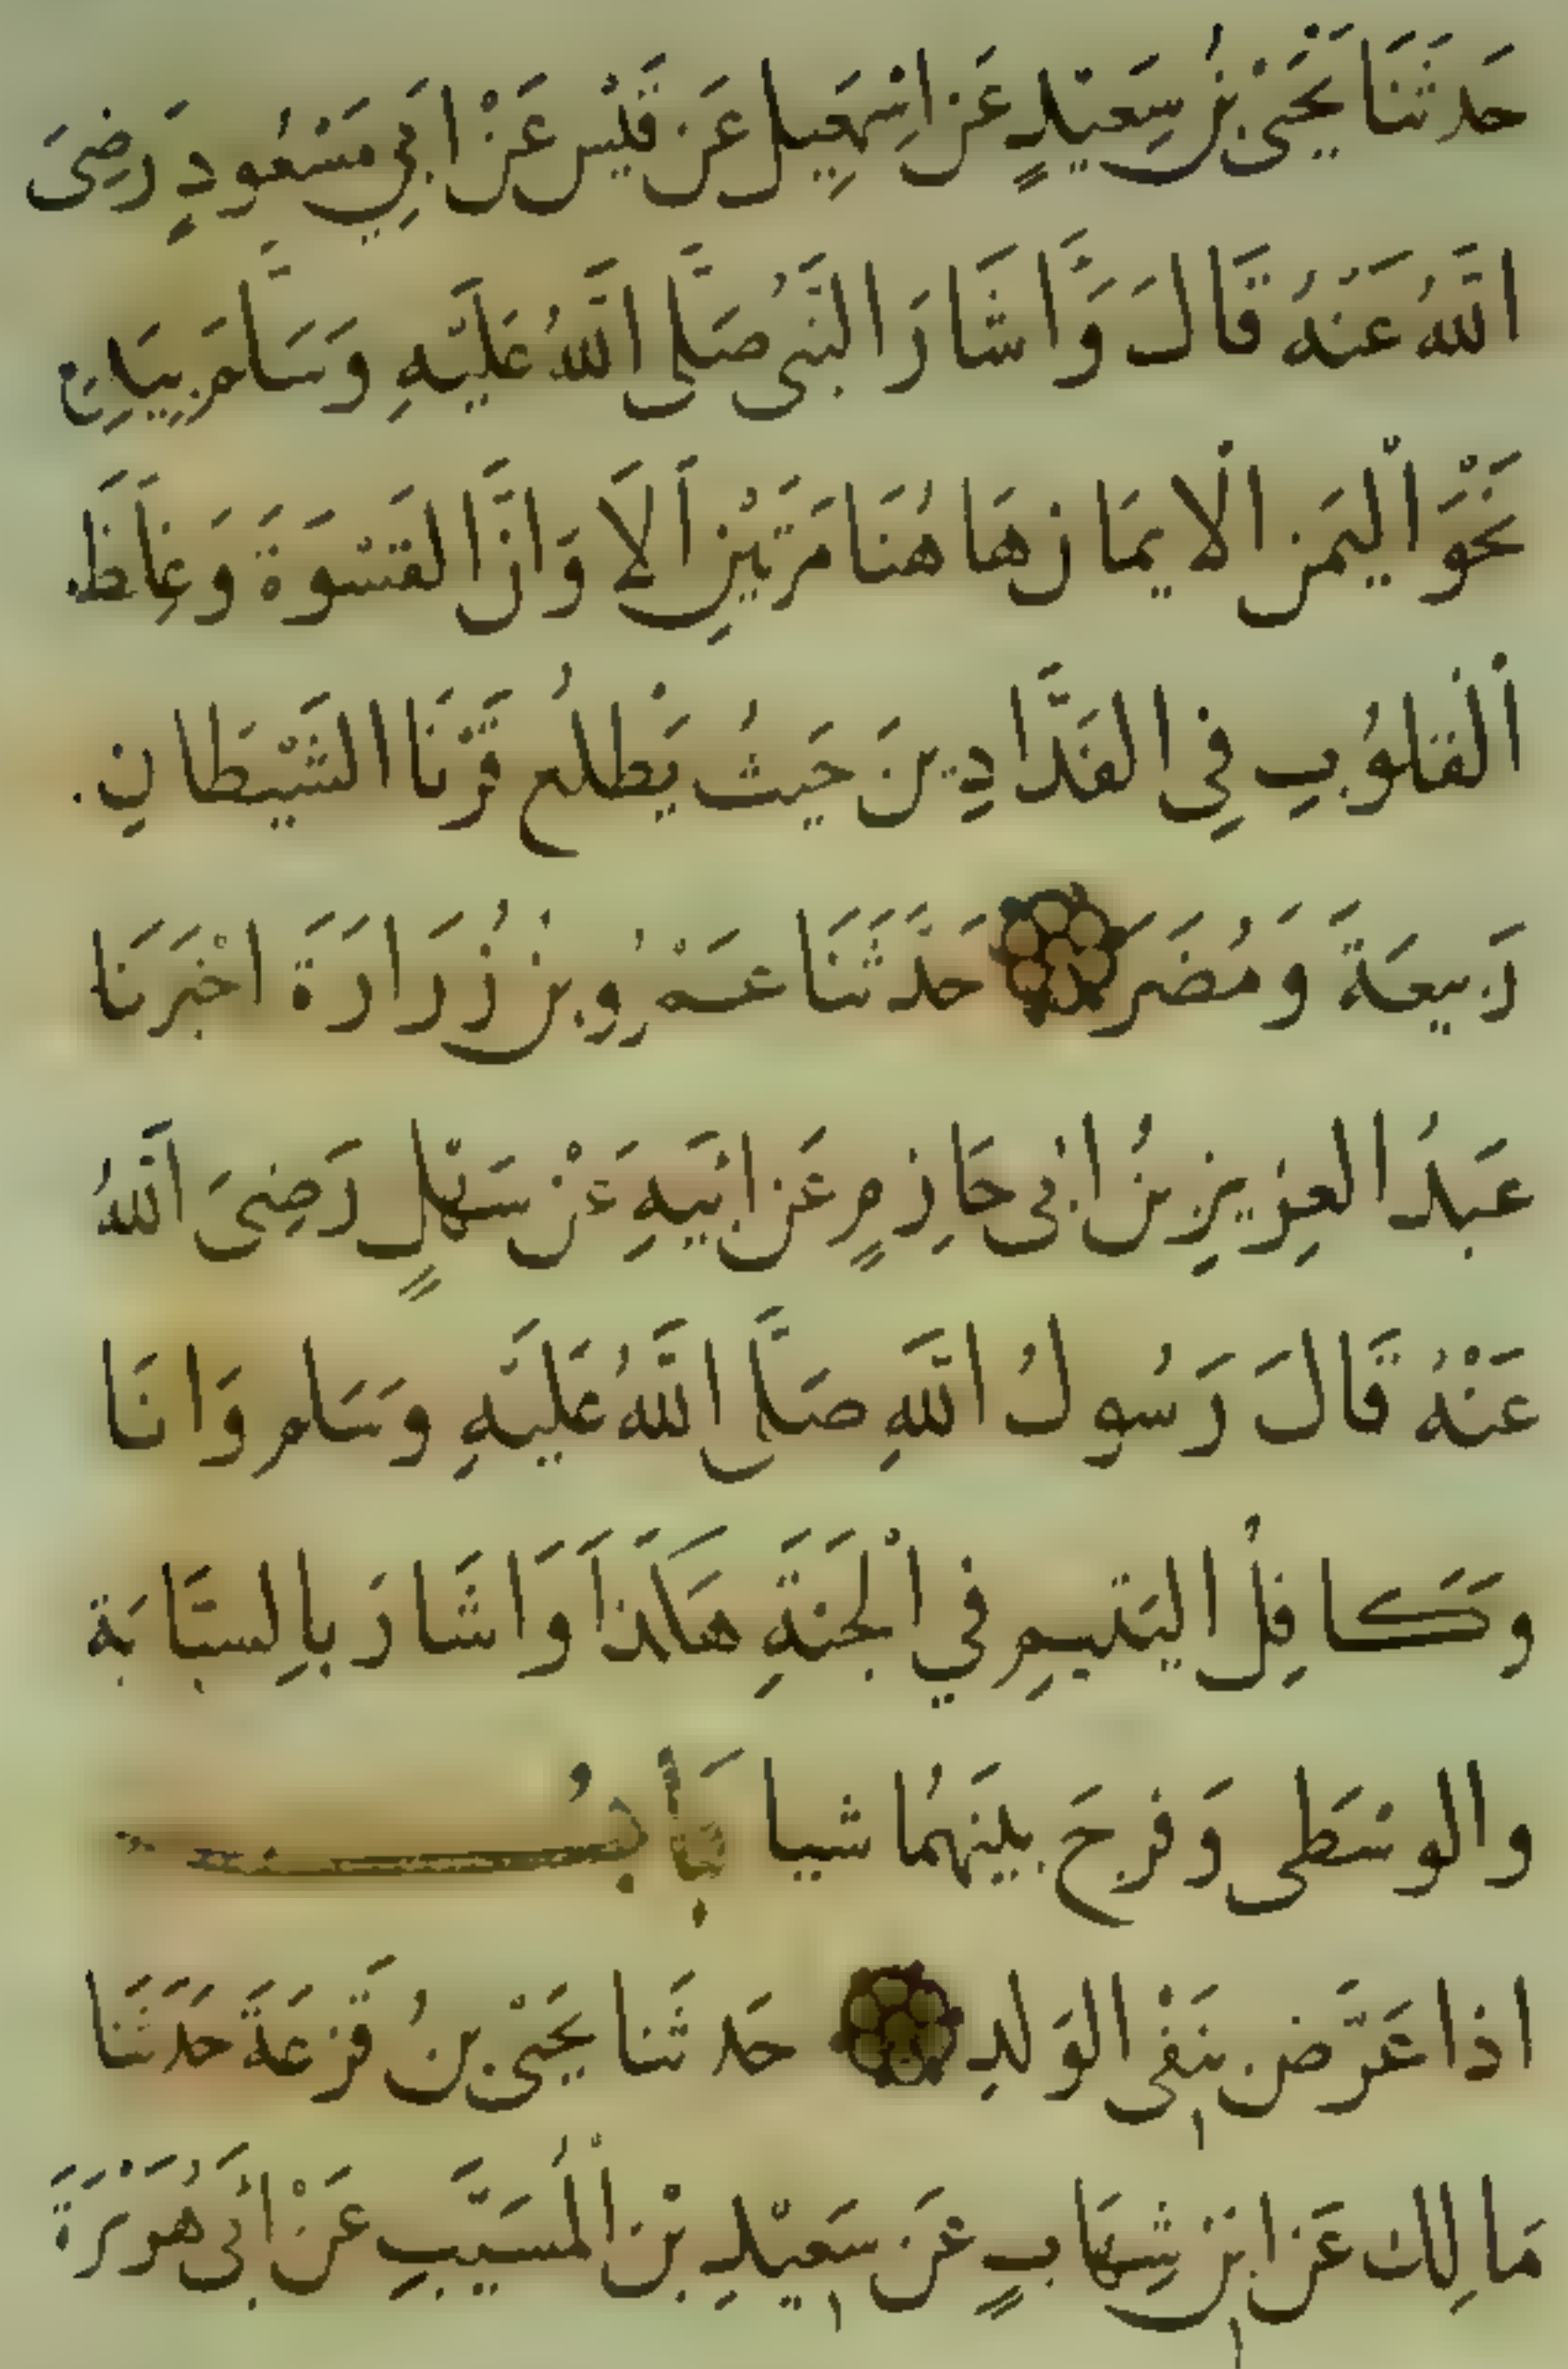 حَدثَنَا يَحْيَى بْنُ سَعِيْدٍ عَن اسْمَعِيل عَن قَيْس عَنْ ابَِي مَسْعُودٍ رَضِىَ
اللَّهُ عَنْهُ قَالَ وَاَشَارَ النَّبُى صَلَّى اللَّهُ عَلَيْهِ وَسَلَّمَ بِيَدِهِ
نَحْوَ الْيَمَن الْايمَان هَاهُنَا مَرَتَيْنِ اَلَا وَانَّ القَسْوَةَ وَغِلَظَ
الْقلُوُبِ فِى الفَدَّادِينَ حَيثُ يَطْلعُ قَرْنَا الشَّيْطَانِ.
رَبيعَةَ وَمُضَرَ حَدَّثَنَا عَمْرُو بن زُرَارَةَ اخْبَرَنَا
عَبدُ العزِيزِ بنُ ابى حَازِمٍ عَن ابَيهِ عَنْ سَهْلٍ رَضِىَ اللَّهُ
عَنْهُ قَالَ رَسُولُ اللَّهِ صَلَّى اللَّهُ عَلَيْهِ وَسَلم وَانَا
وَكَافِلُ اليَتيمِ في الْجَنَةِ هَكَذَا وَاشَارَ باِلسبَّابَة
والوسْطَى وَفرجَ بيَنَهُمَا شيا بَابُ
اذا عَرَّض بنَفْى الوَلدِ حَدثَنا يَحْيَى بنُ قَزعَةَ حَدَثَنَا
مَالِك عَن ابَن شِهَابٍ عَن سَعيْدِ بْن الْمُسَيَّبِ عَنْ ابَى هُرَيْرَةَ